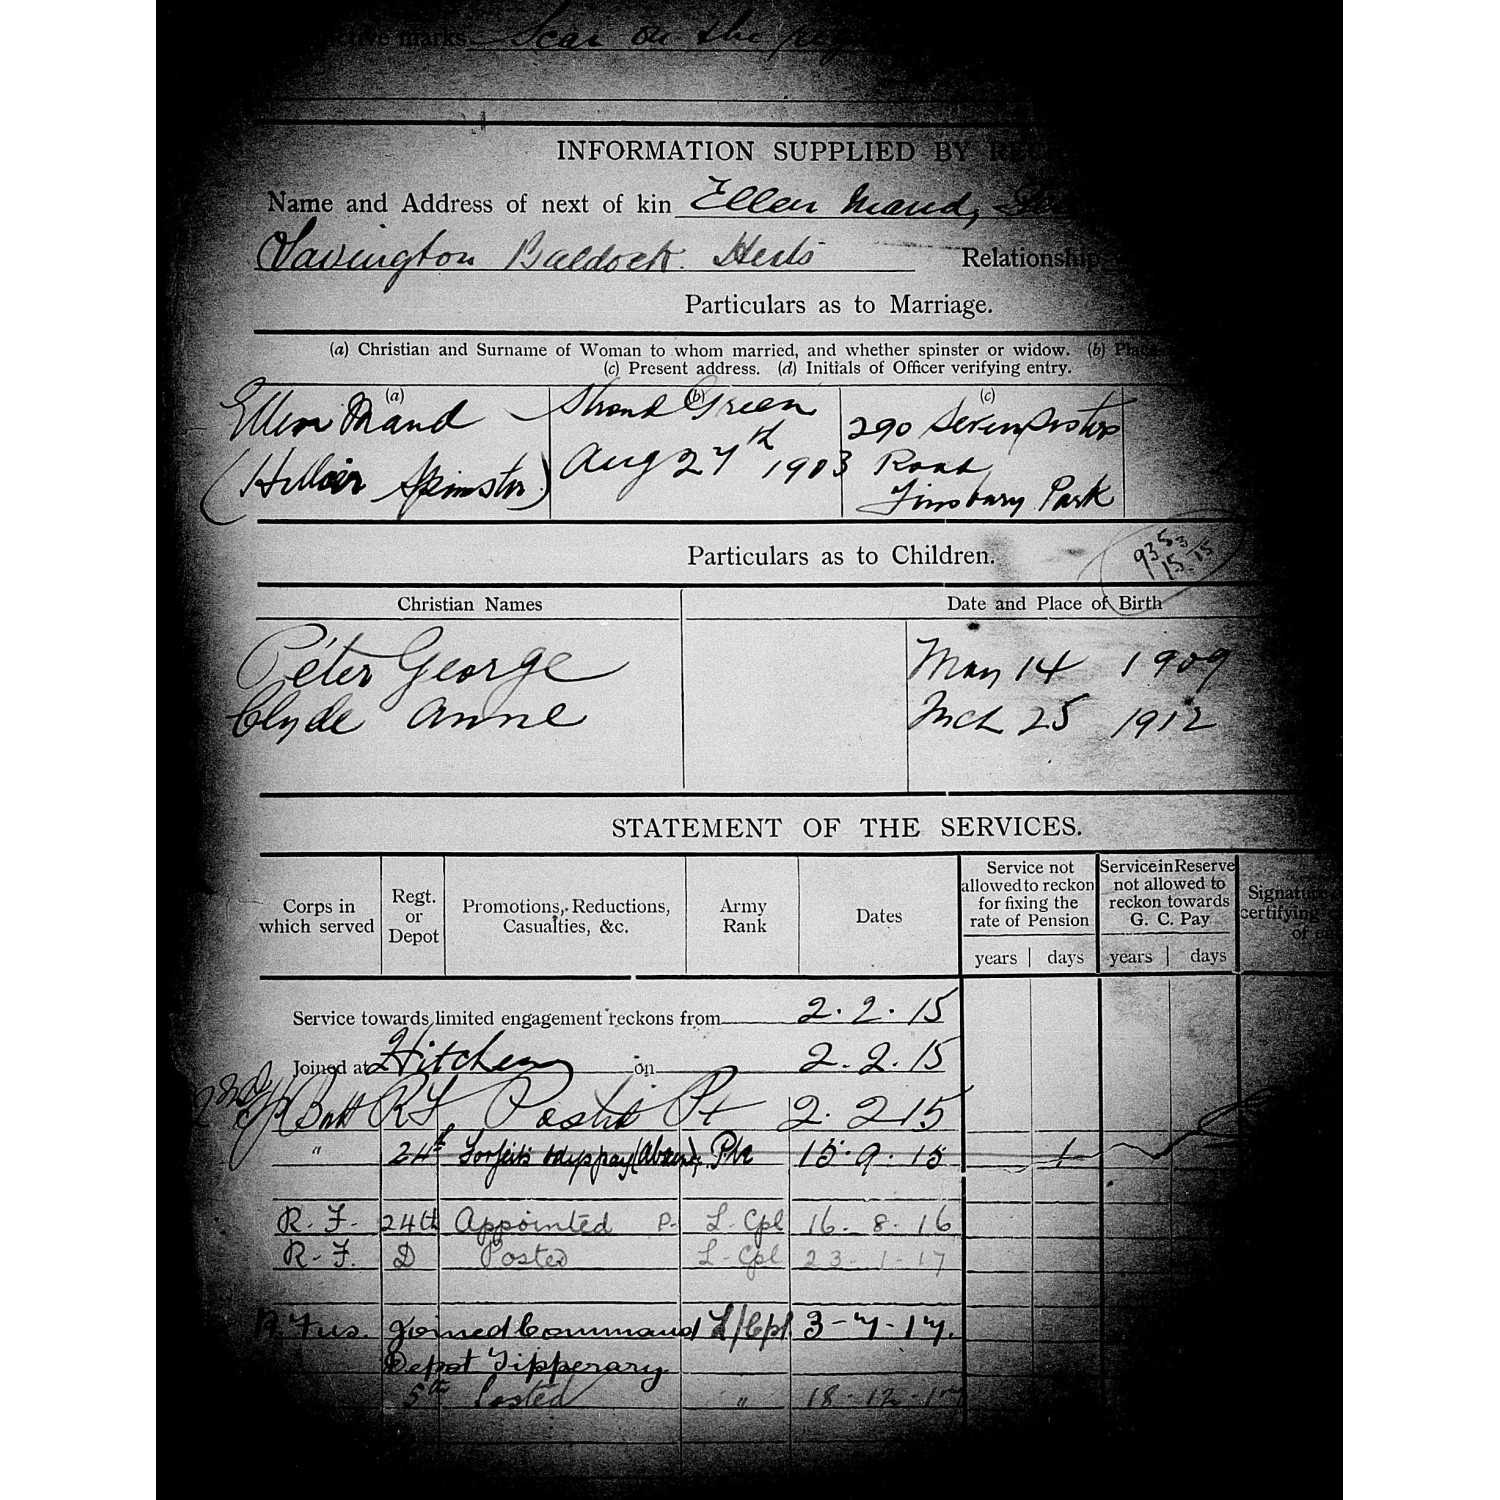 tive marks Scar on the
INFORMATION SUPPLIED BY REC
Name and Address of next of kin Ellen Maud,
Baldock. Herts Relationship
Particulars as to Marriage.
(a) Christian and Surname of Woman to whom married, and whether spinster or widow. (b) Place
(c) Present address. (d) Initials of Officer verifying entry.
(a) (b) (c)
Ellen Maud Stroud Green 290 Seven Sisters
(Hillier Spinster) Aug 27th 1903 Road
Finsbury Park
Particulars as to Children.
Christian Names Date and Place of Birth
Peter George May 14 1909
Clyde Anne Mch 25 1912
STATEMENT OF THE SERVICES.
Corps in which served Regt. or Depot Promotions, Reductions, Casualties, &c. Army Rank Dates Service not allowed to reckon for fixing the rate of Pension Service in Reserve not allowed to reckon towards G. C. Pay Signature certifying of
years days years days
Service towards limited engagement reckons from 2.2.15
Joined at Hitchin on 2.2.15
2nd Batt R.F. Posted Pt 2.2.15
" 24th Forfeits 1 days pay (Absence) Pte 15.9.15 1
R.F. 24th Appointed P. L-Cpl 16.8.16
R.F. D Posted L-Cpl 23.1.17
R. Fus. Joined Command L/Cpl 3-7-17.
Depot Tipperary
5th Posted " 18.12.17